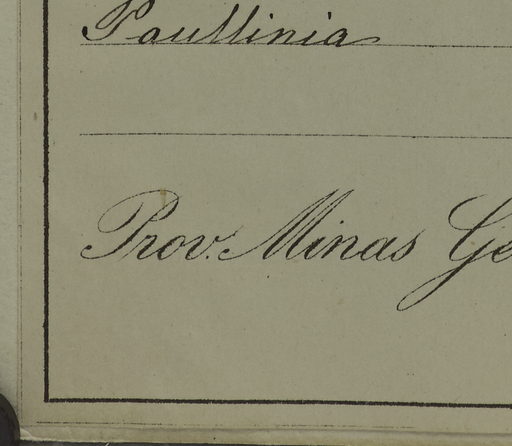 Paullinia
Prov. Minas Ge